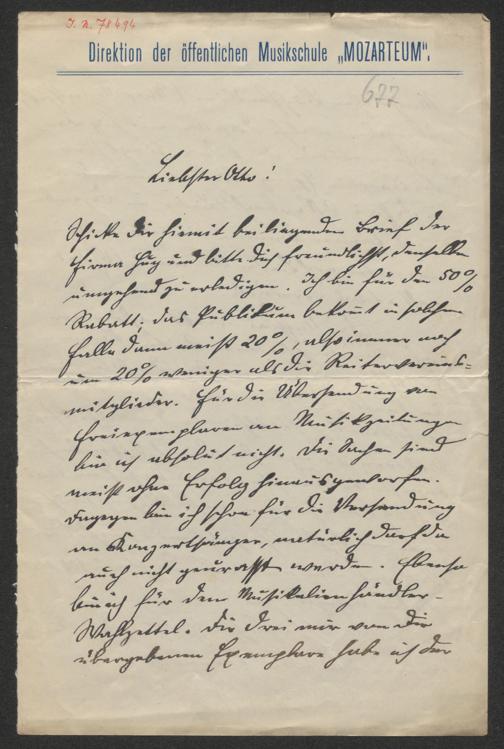 I. N. 78494
Direktion der öffentlichen Musikschule „MOZARTEUM“.
677
Liebster Otto!
Schicke Dir hiemit beiliegenden Brief der
Firma Hug und bitte Dich freundlichst, denselben
umgehend zu erledigen. Ich bin für den 50%
Rabatt; das Publikum bekomt in solchem
Falle dann meist 20%, also immer noch
um 20% weniger als die
mitglieder. Für die Übersendung von
Freiexemplaren an Musikzeitungen
bin ich absolut nicht. Die Sachen sind
meist ohne Erfolg hinausgeworfen.
Dagegen bin ich schon für die Versendung
an Konzertsänger, natürlich darf da
auch nicht werden. Ebenso
bin ich für den Musikalienhändler-
Wahlzettel. Die drei mir von Dir
übergebenen Exemplare habe ich der